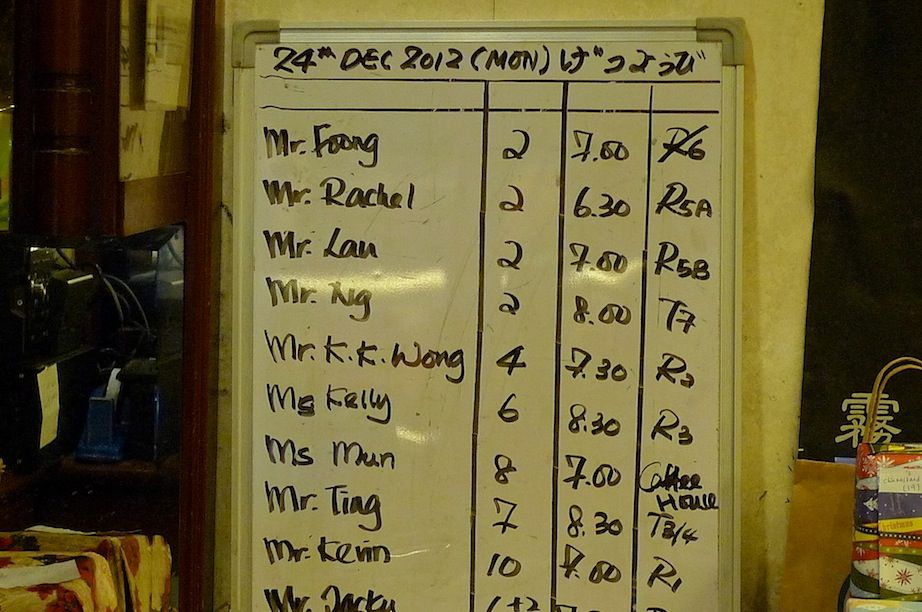 24th DEC 2012 (MON) げつようび
Mr. Foong 2 7.00 R6
Mr. Rachel 2 6.30 R5A
Mr. Lau 2 7.00 R5B
Mr. Ng 2 8.00 T7
Mr. K.K. Wong 4 7.30 R2
Ms Kelly 6 8.30 R3
Ms Mun 8 7.00 Coffee House
Mr. Ting 7 8.30 T3/4
Mr. Kevin 10 7.00 R1
Mr. Jacky
霧